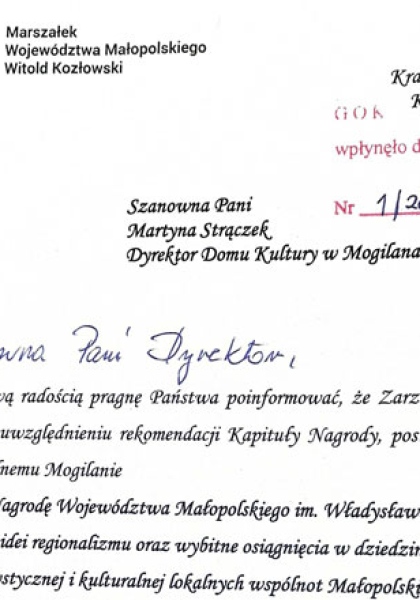 Marszałek
Województwa Małopolskiego
Witold Kozłowski
Kra
K
GOK
wpłynęło d
Szanowna Pani
Nr 1/20
Martyna Strączek
Dyrektor Domu Kultury w Mogilana
wna Pani Dyrektor,
wą radością pragnę Państwa poinformować, że Zarz
uwzględnieniu rekomendacji Kapituły Nagrody, pos
lnemu Mogilanie
Nagrodę Województwa Małopolskiego im. Władysław
idei regionalizmu oraz wybitne osiągnięcia w dziedzin
ystycznej i kulturalnej lokalnych wspólnot Małopolski